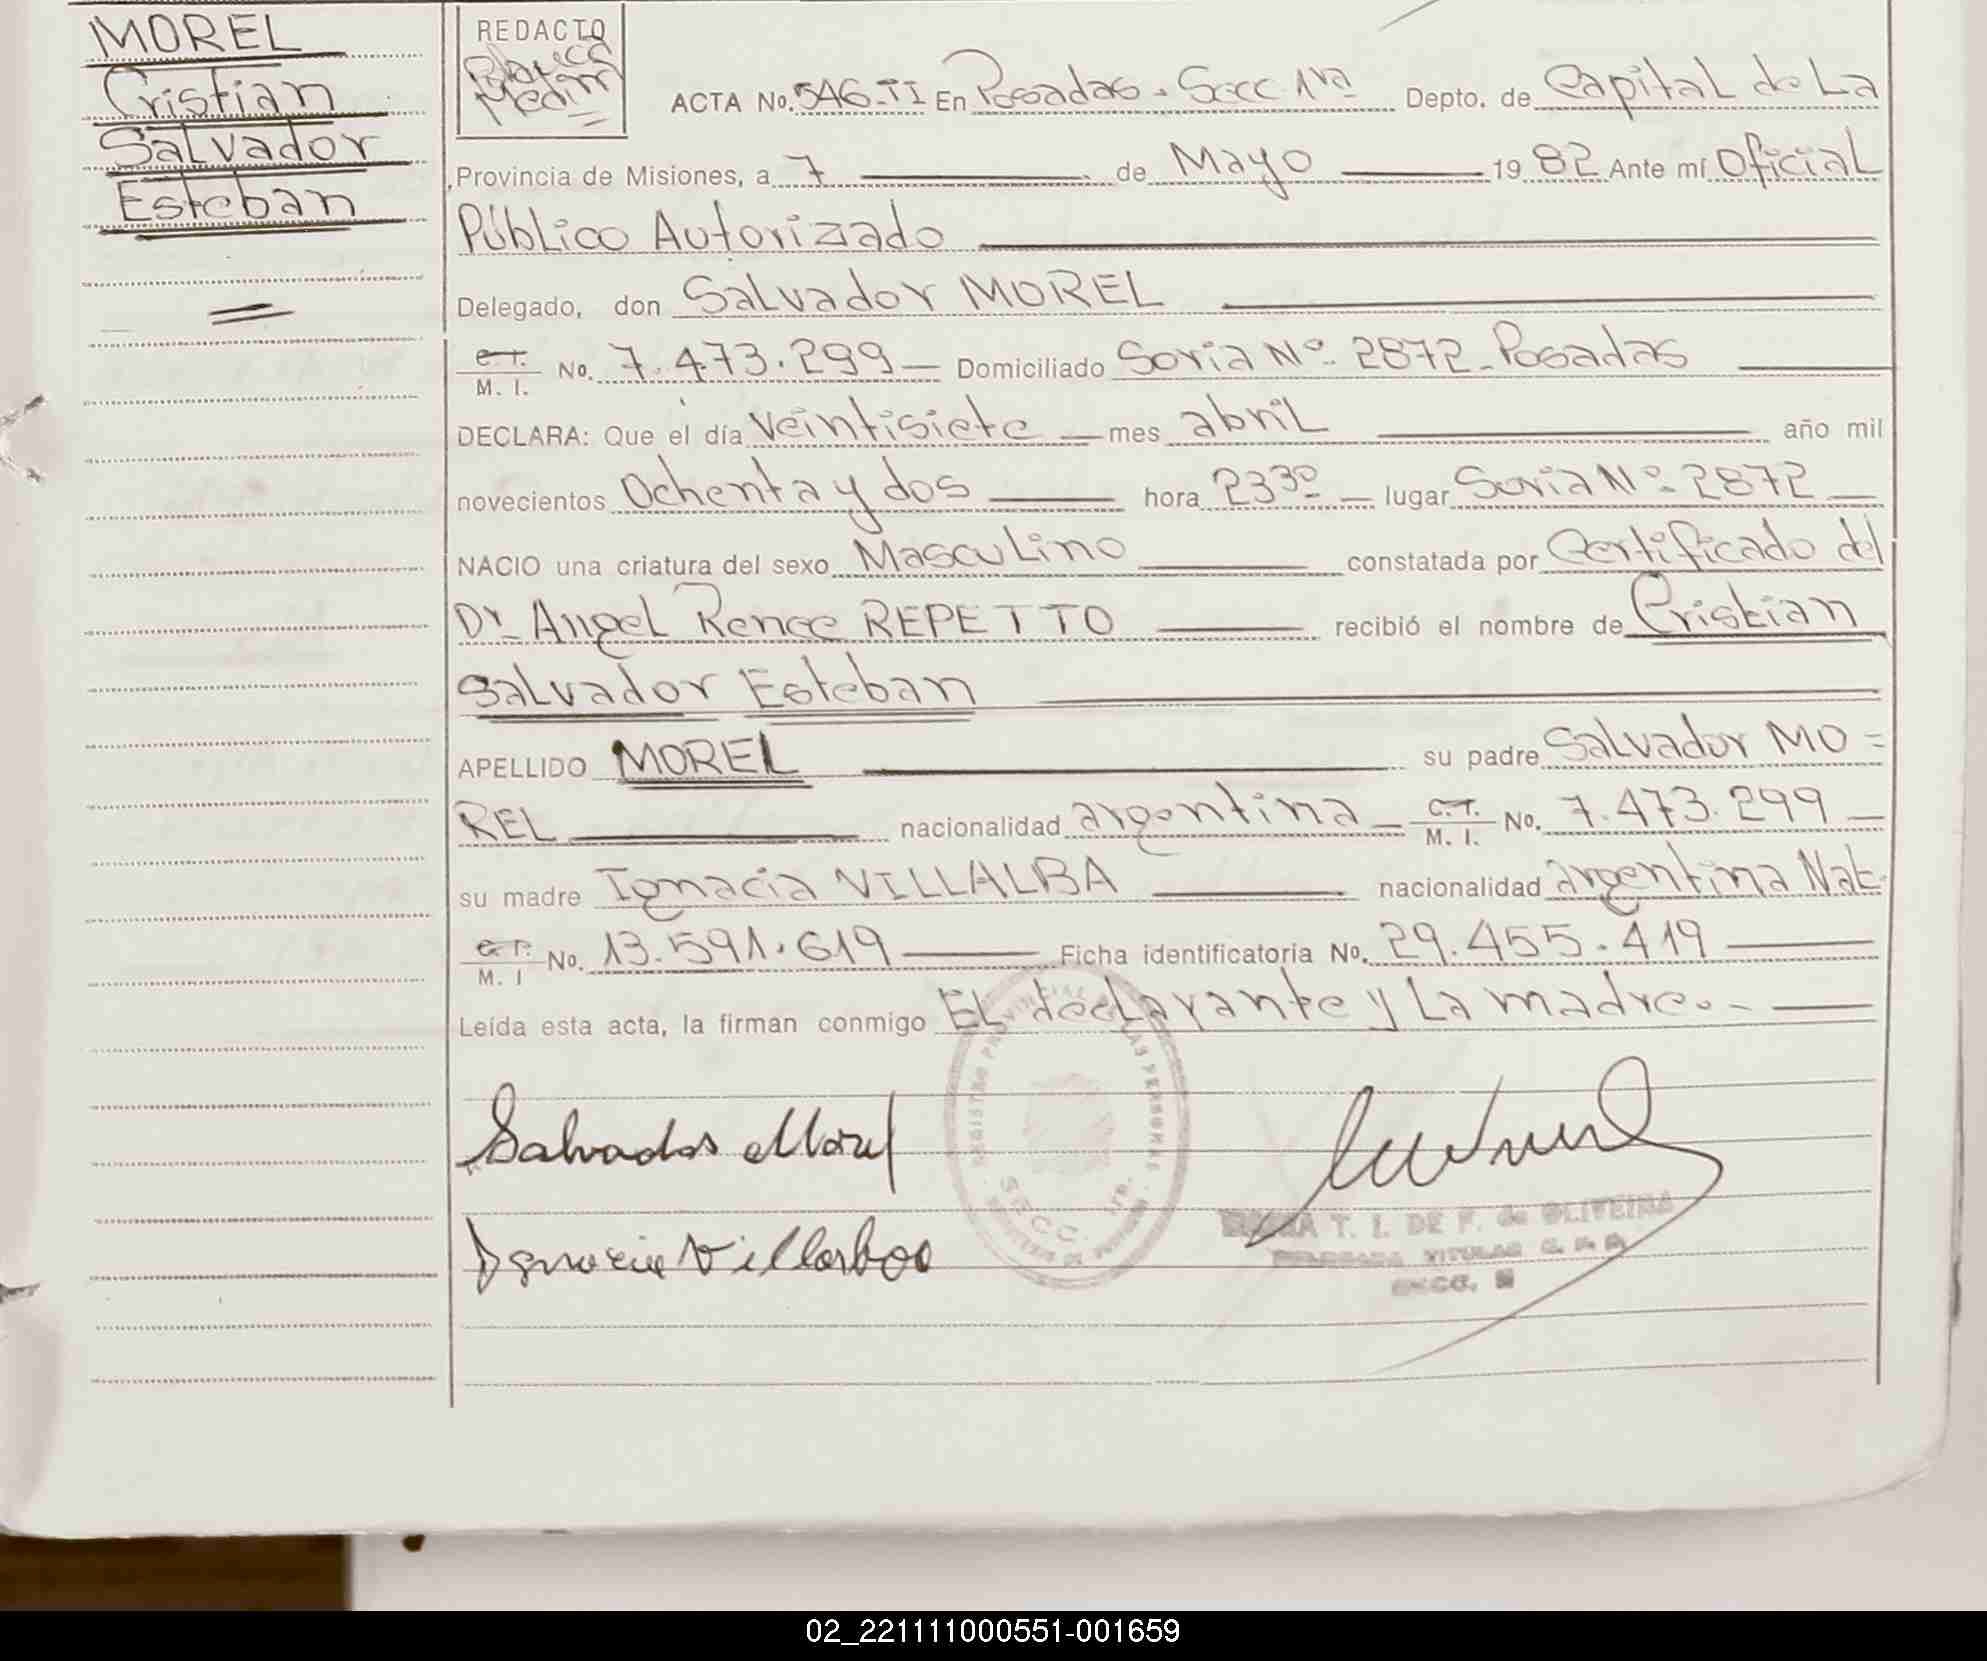 MOREL
Cristian
Salvador
Esteban
REDACTO
Blanca
Medina
ACTA No. 546-II En Posadas. Secc 1ra Depto. de Capital de La
Provincia de Misiones, a 7 de Mayo 1982 Ante mí Oficial
Público Autorizado
Delegado, don Salvador MOREL
C.I. M. I. No. 7.473.299 Domiciliado Soria Nº 2872 - Posadas
DECLARA: Que el día veintisiete mes abril año mil
novecientos Ochenta y dos hora 23³⁰ lugar Soria Nº 2872
NACIO una criatura del sexo Masculino constatada por Certificado del
Dr. Angel Renee REPETTO recibió el nombre de Cristian
Salvador Esteban
APELLIDO MOREL su padre Salvador MO=
REL nacionalidad argentina C.I. M. I. No. 7.473.299
su madre Ignacia VILLALBA nacionalidad argentina Nat.
C.I. M. I No. 13.591.619 Ficha identificatoria No. 29.455.419
Leída esta acta, la firman conmigo El declarante y La madre.-
Salvador Morel
REGISTRO PROVINCIAL LAS PERSONAS
SECC. 1ra.
T. I. DE F. de OLIVEIRA
TITULAR
02_221111000551-001659